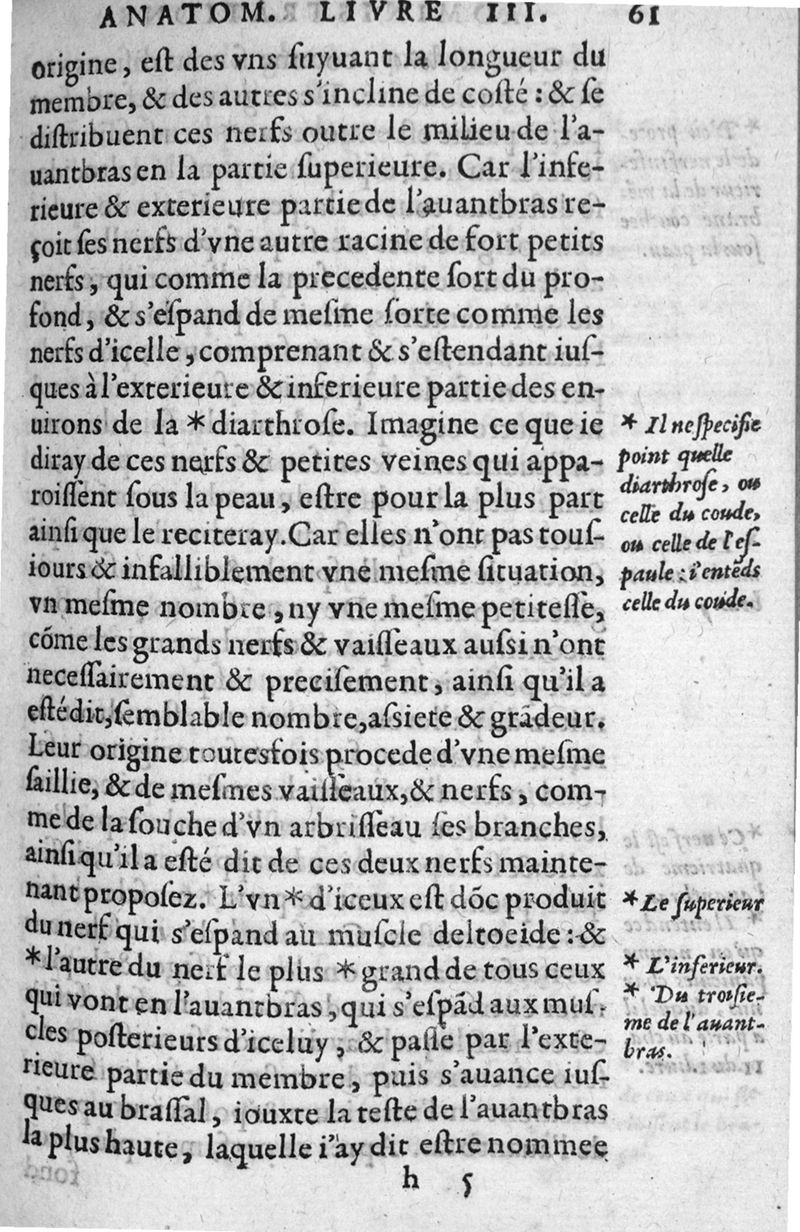 ANATOM. LIVRE III. 61
origine, eſt des vns ſuyuant la longueur du
membre, & des autres s'incline de coſté : & ſe
diſtribuent ces nerfs outre le milieu de l'a-
uantbras en la partie ſuperieure. Car l'infe-
rieure & exterieure partie de l'auantbras re-
çoit ſes nerfs d'vne autre racine de fort petits
nerfs, qui comme la precedente ſort du pro-
fond, & s'eſpand de meſme ſorte comme les
nerfs d'icelle, comprenant & s'eſtendant iuſ-
ques à l'exterieure & inferieure partie des en-
uirons de la * diarthroſe. Imagine ce que ie
diray de ces nerfs & petites veines qui appa-
roiſſent ſous la peau, eſtre pour la plus part
ainſi que le reciteray. Car elles n'ont pas touſ-
iours & infalliblement vne meſme ſituation,
vn meſme nombre, ny vne meſme petiteſſe,
cõme les grands nerfs & vaiſſeaux auſsi n'ont
neceſſairement & preciſement, ainſi qu'il a
eſté dit, ſemblable nombre, aſsiete & grãdeur.
Leur origine toutesfois procede d'vne meſme
ſaillie, & de meſmes vaiſſeaux, & nerfs, com-
me de la ſouche d'vn arbriſſeau ſes branches,
ainſi qu'il a eſté dit de ces deux nerfs mainte-
nant propoſez. L'vn * d'iceux eſt dõc produit
du nerf qui s'eſpand au muſcle deltoeide : &
* l'autre du nerf le plus * grand de tous ceux
qui vont en l'auantbras, qui s'eſpãd aux muſ-
cles poſterieurs d'iceluy, & paſſe par l'exte-
rieure partie du membre, puis s'auance iuſ-
ques au braſſal, iouxte la teſte de l'auantbras
la plus haute, laquelle i'ay dit eſtre nommee
h 5
* Il ne ſpecifie
point quelle
diarthroſe, ou
celle du coude,
ou celle de l'eſ-
paule : i'entẽds
celle du coude.
* Le ſuperieur
* L'inferieur.
* Du troiſie-
me de l'auant-
bras.